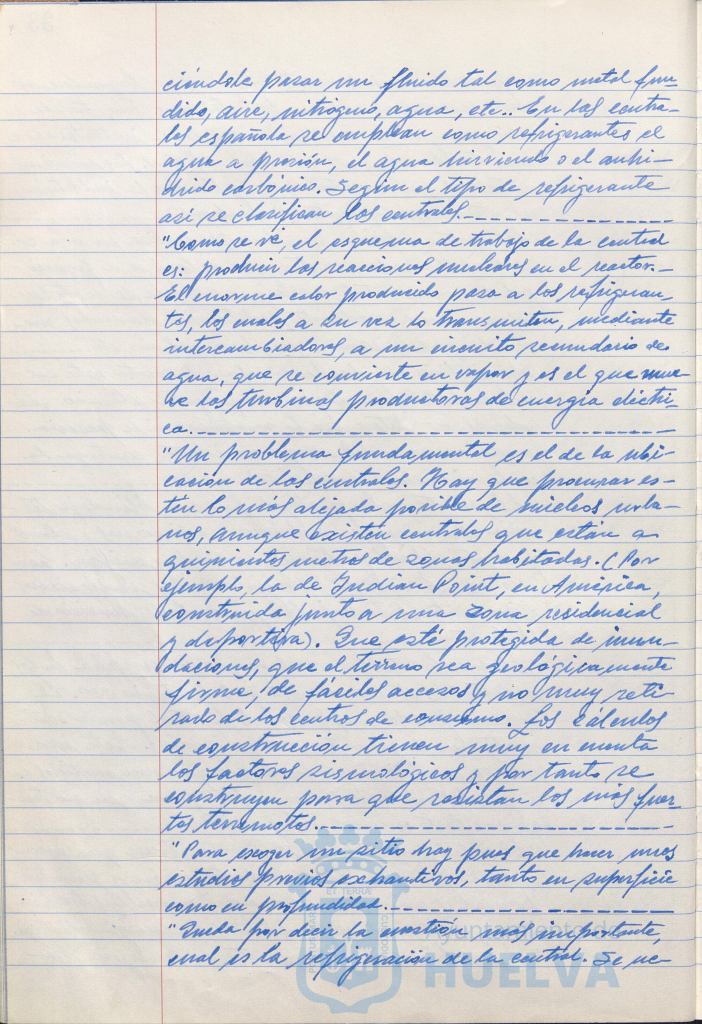 ciéndole pasar un fluido tal como metal fun-
dido, aire, nitrógeno, agua, etc.. En las centra-
les española se emplean como refrigerantes el
agua a presión, el agua hirviendo o el anhi-
drido carbónico. Según el tipo de refrigerante
así se clasifican las centrales.
"Como se vé, el esquema de trabajo de la central
es: producir las reacciones nucleares en el reactor.-
El enorme calor producido pasa a los refrigeran-
tes, los cuales a su vez lo transmiten, mediante
intercambiadores, a un circuito secundario de
agua, que se convierte en vapor y es el que mue-
ve las turbinas productoras de energía eléctri-
ca.
"Un problema fundamental es el de la ubi-
cación de las centrales. Hay que procurar es-
tén lo más alejada posible de núcleos urba-
nos, aunque existen centrales que están a
quinientos metros de zonas habitadas. (Por
ejemplo, la de Indian Point, en América,
construida junto a una zona residencial
y deportiva). Que esté protegida de inun-
daciones, que el terreno sea geológicamente
firme, de fáciles accesos y no muy reti-
rado de los centros de consumo. Los cálculos
de construcción tienen muy en cuenta
los factores sismológicos y por tanto se
construyen para que resistan los más fuer-
tes terremotos.
"Para escoger un sitio hay pues que hacer unos
estudios previos exhaustivos, tanto en superficie
como en profundidad.
"Queda por decir la cuestión más importante,
cual es la refrigeración de la central. Se ne-
HUELVA